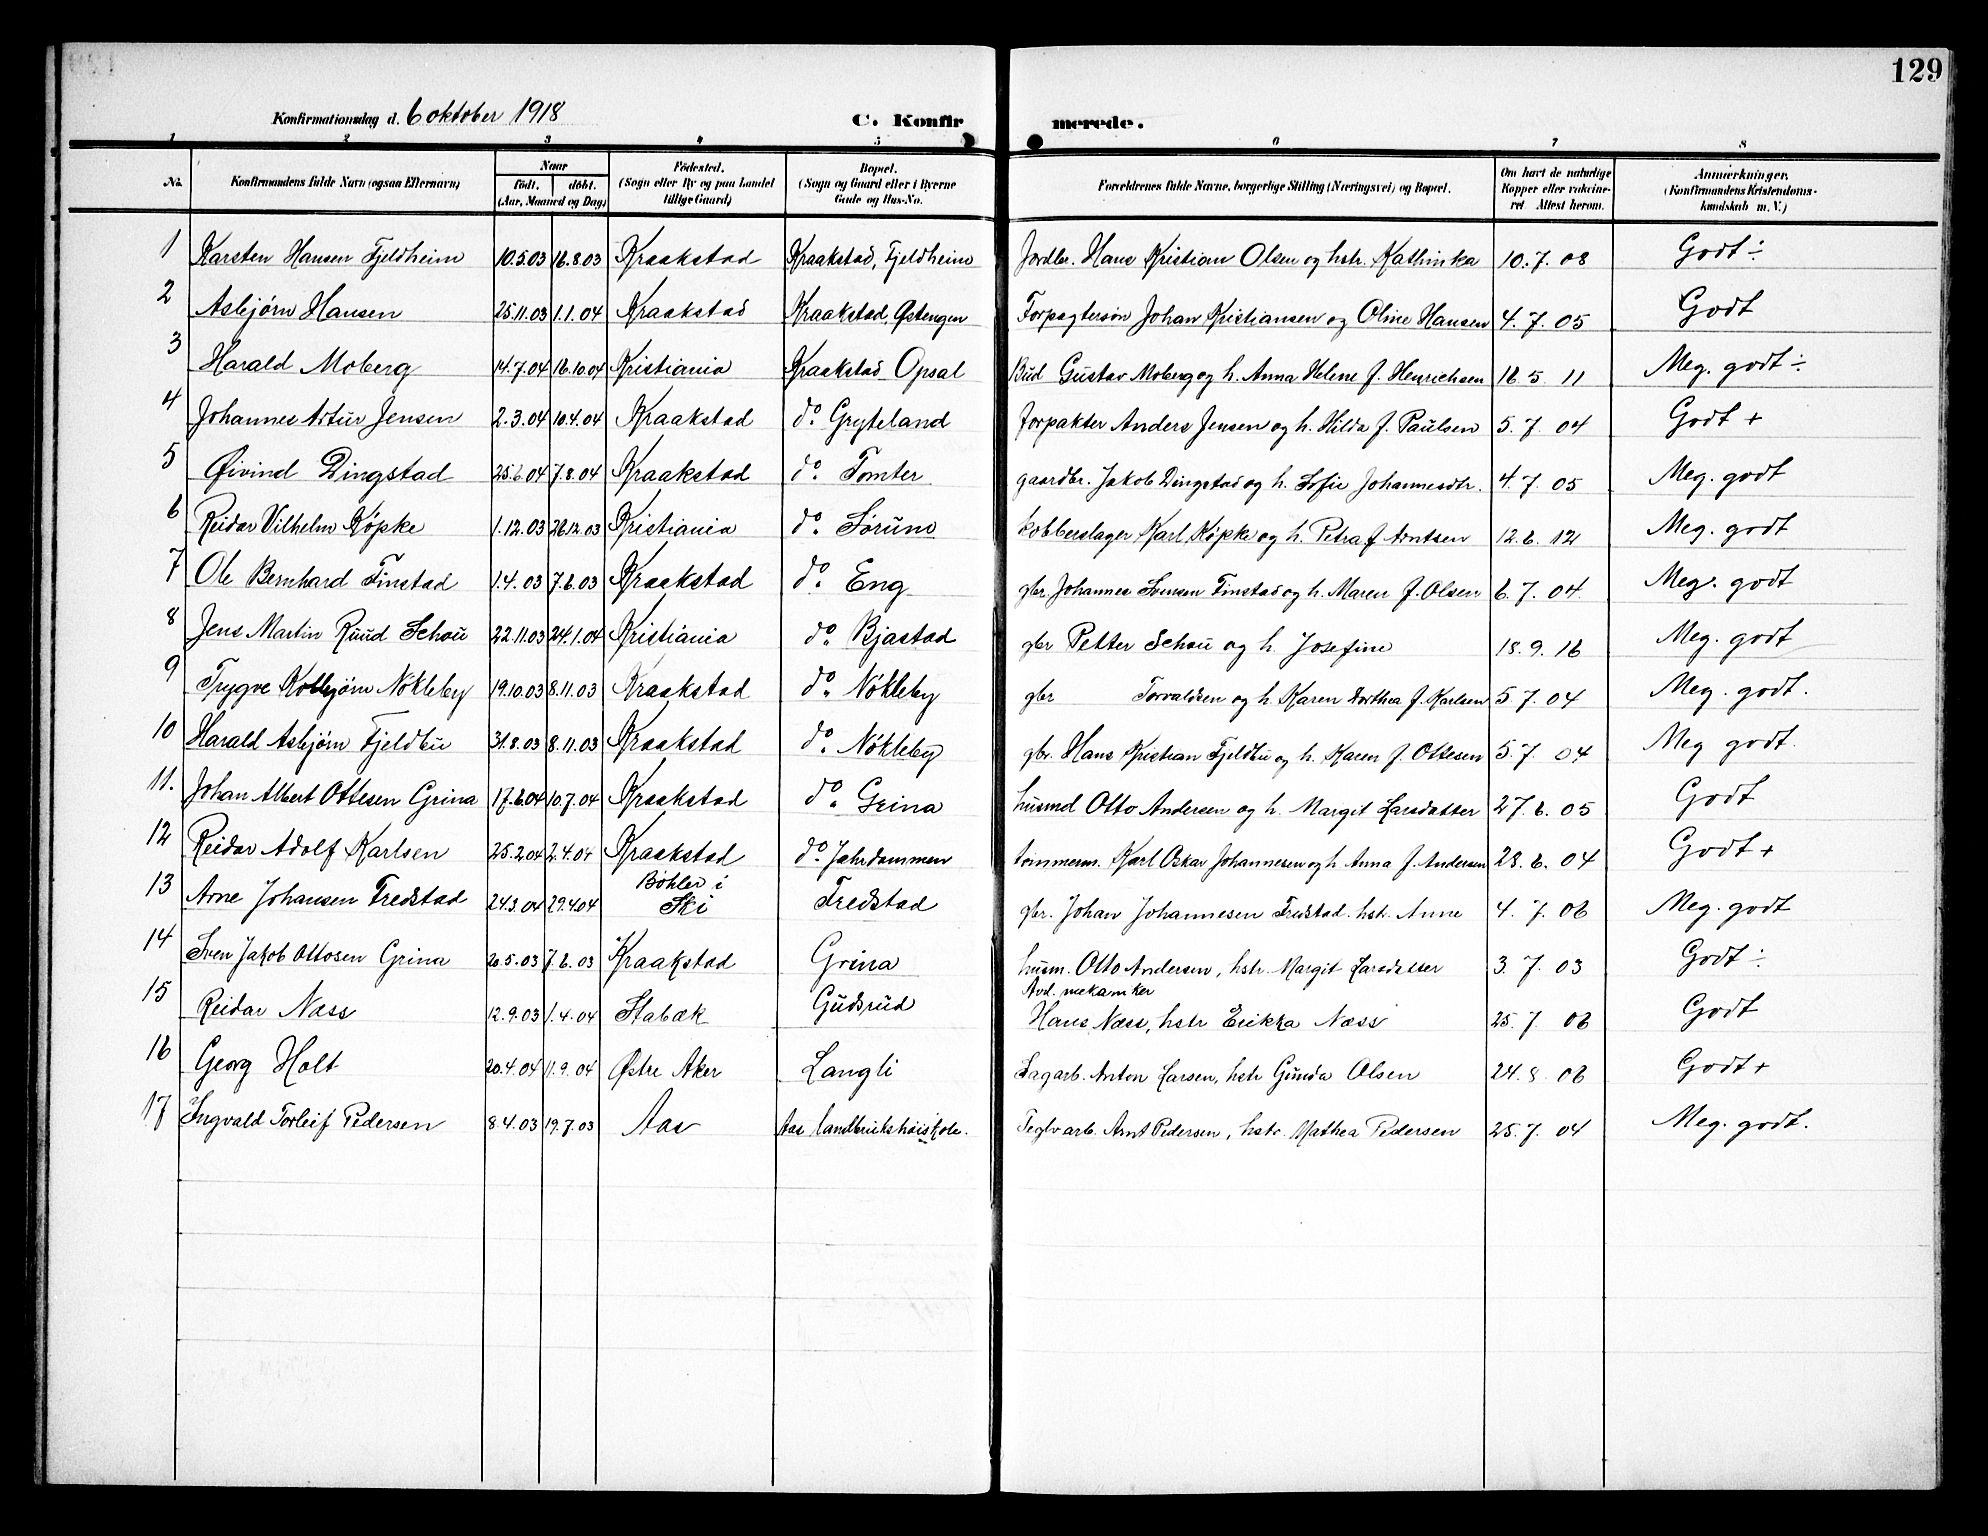 129
Konfirmationsdag d. 6 oktober 1918 C. Konfirmerede.
1 2 3 4 5 6 7 8
No. Konfirmandens fulde Navn (ogsaa Efternavn) Naar født. døbt. (Aar, Maaned og Dag) Fødested. (Sogn eller By og paa Landet tillige Gaard) Bopæl. (Sogn og Gaard eller i Byerne Gade og Hus-No. Forældrenes fulde Navne, borgerlige Stilling (Næringsvei) og Bopæl. Om havt de naturlige Kopper eller vaccineret Attest herom. Anmærkninger. (Konfirmandens Kristendomskundskab m. V.)
1 Karsten Hansen Fjeldheim 10.5.03 16.8.03 Kraakstad Kraakstad, Fjeldheim Jordbr. Hans Kristian Olsen og hstr. Kathinka 10.7.08 Godt ÷
2 Asbjørn Hansen 25.11.03 1.1.04 Kraakstad Kraakstad, Østengen Forpagtersøn Johan Kristiansen og Oline Hansen 4.7.05 Godt
3 Harald Moberg 14.7.04 16.10.04 Kristiania Kraakstad Opsal Bud Gustav Moberg og h. Anna Helene f. Henrichsen 16.5.11 Meg. godt ÷
4 Johannes Artur Jensen 2.3.04 10.4.04 Kraakstad do. Gryteland forpakter Anders Jensen og h. Hilda f. Paulsen 5.7.04 Godt +
5 Øivind Dingstad 25.6.04 7.8.04 Kraakstad do. Tomter gaardbr. Jakob Dingstad og h. Sofie Johannesdtr. 4.7.05 Meg. godt
6 Reidar Vilhelm Köpke 1.12.03 26.12.03 Kristiania do. Sörum kobberslager Karl Köpke og h. Petra f. Arntsen 12.6.12 Meg. godt
7 Ole Bernhard Finstad 1.4.03 7.6.03 Kraakstad do. Eng gbr. Johannes Svensen Finstad og h. Maren f. Olsen 6.7.04 Meg. godt
8 Jens Martin Ruud Schou 22.11.03 24.1.04 Kristiania do. Bjastad gbr Petter Schou og h. Josefine 18.9.16 Meg. godt
9 Trygve Kolbjørn Nökleby 19.10.03 8.11.03 Kraakstad do. Nökleby gbr Torvaldsen og h. Karen Dorthea f. Karlsen 5.7.04 Meg. godt.
10 Harald Asbjørn Fjeldbu 31.8.03 8.11.03 Kraakstad do. Nökleby gbr. Hans Kristian Fjeldbu og h. Karen f. Ottesen 5.7.04 Meg godt.
11. Johan Albert Ottesen Grina 17.6.04 10.7.04 Kraakstad do. Grina husmd Otto Andersen og h. Margit Larsdatter 27.6.05 Godt
12 Reidar Adolf Karlsen 25.2.04 2.4.04 Kraakstad do. Jahrdammen tömmerm. Karl Oskar Johannesen og h. Anna f. Andersen 28.6.04 Godt +
13 Arne Johansen Fredstad 24.3.04 29.4.04 Böhler i Ski Fredstad gbr. Johan Johannesen Fredstad. hstr. Anne 4.7.06 Meg. godt
14 Sven Jakob Ottosen Grina 20.5.03 7.6.03 Kraakstad Grina husm. Otto Andersen, hstr. Margit Larsdatter 3.7.03 Godt ÷
15 Reidar Næss 12.9.03 1.4.04 Stabæk Gudsrud mekaniker Hans Næss, hstr Erikka Næss 25.7 06 Godt
16 Georg Holt 20.4.04 11.9.04 Østre Aker Langli Sagarb. Anton Larsen, hstr Gunda Olsen 24.8.06 Godt +
17 Ingvald Torleif Pedersen 8.4.03 19.7.03 Aas Aas landbrukshøiskole. Teglvarb. Arnt Pedersen, hstr. Mathea Pedersen 25.7.04 Meg. godt.